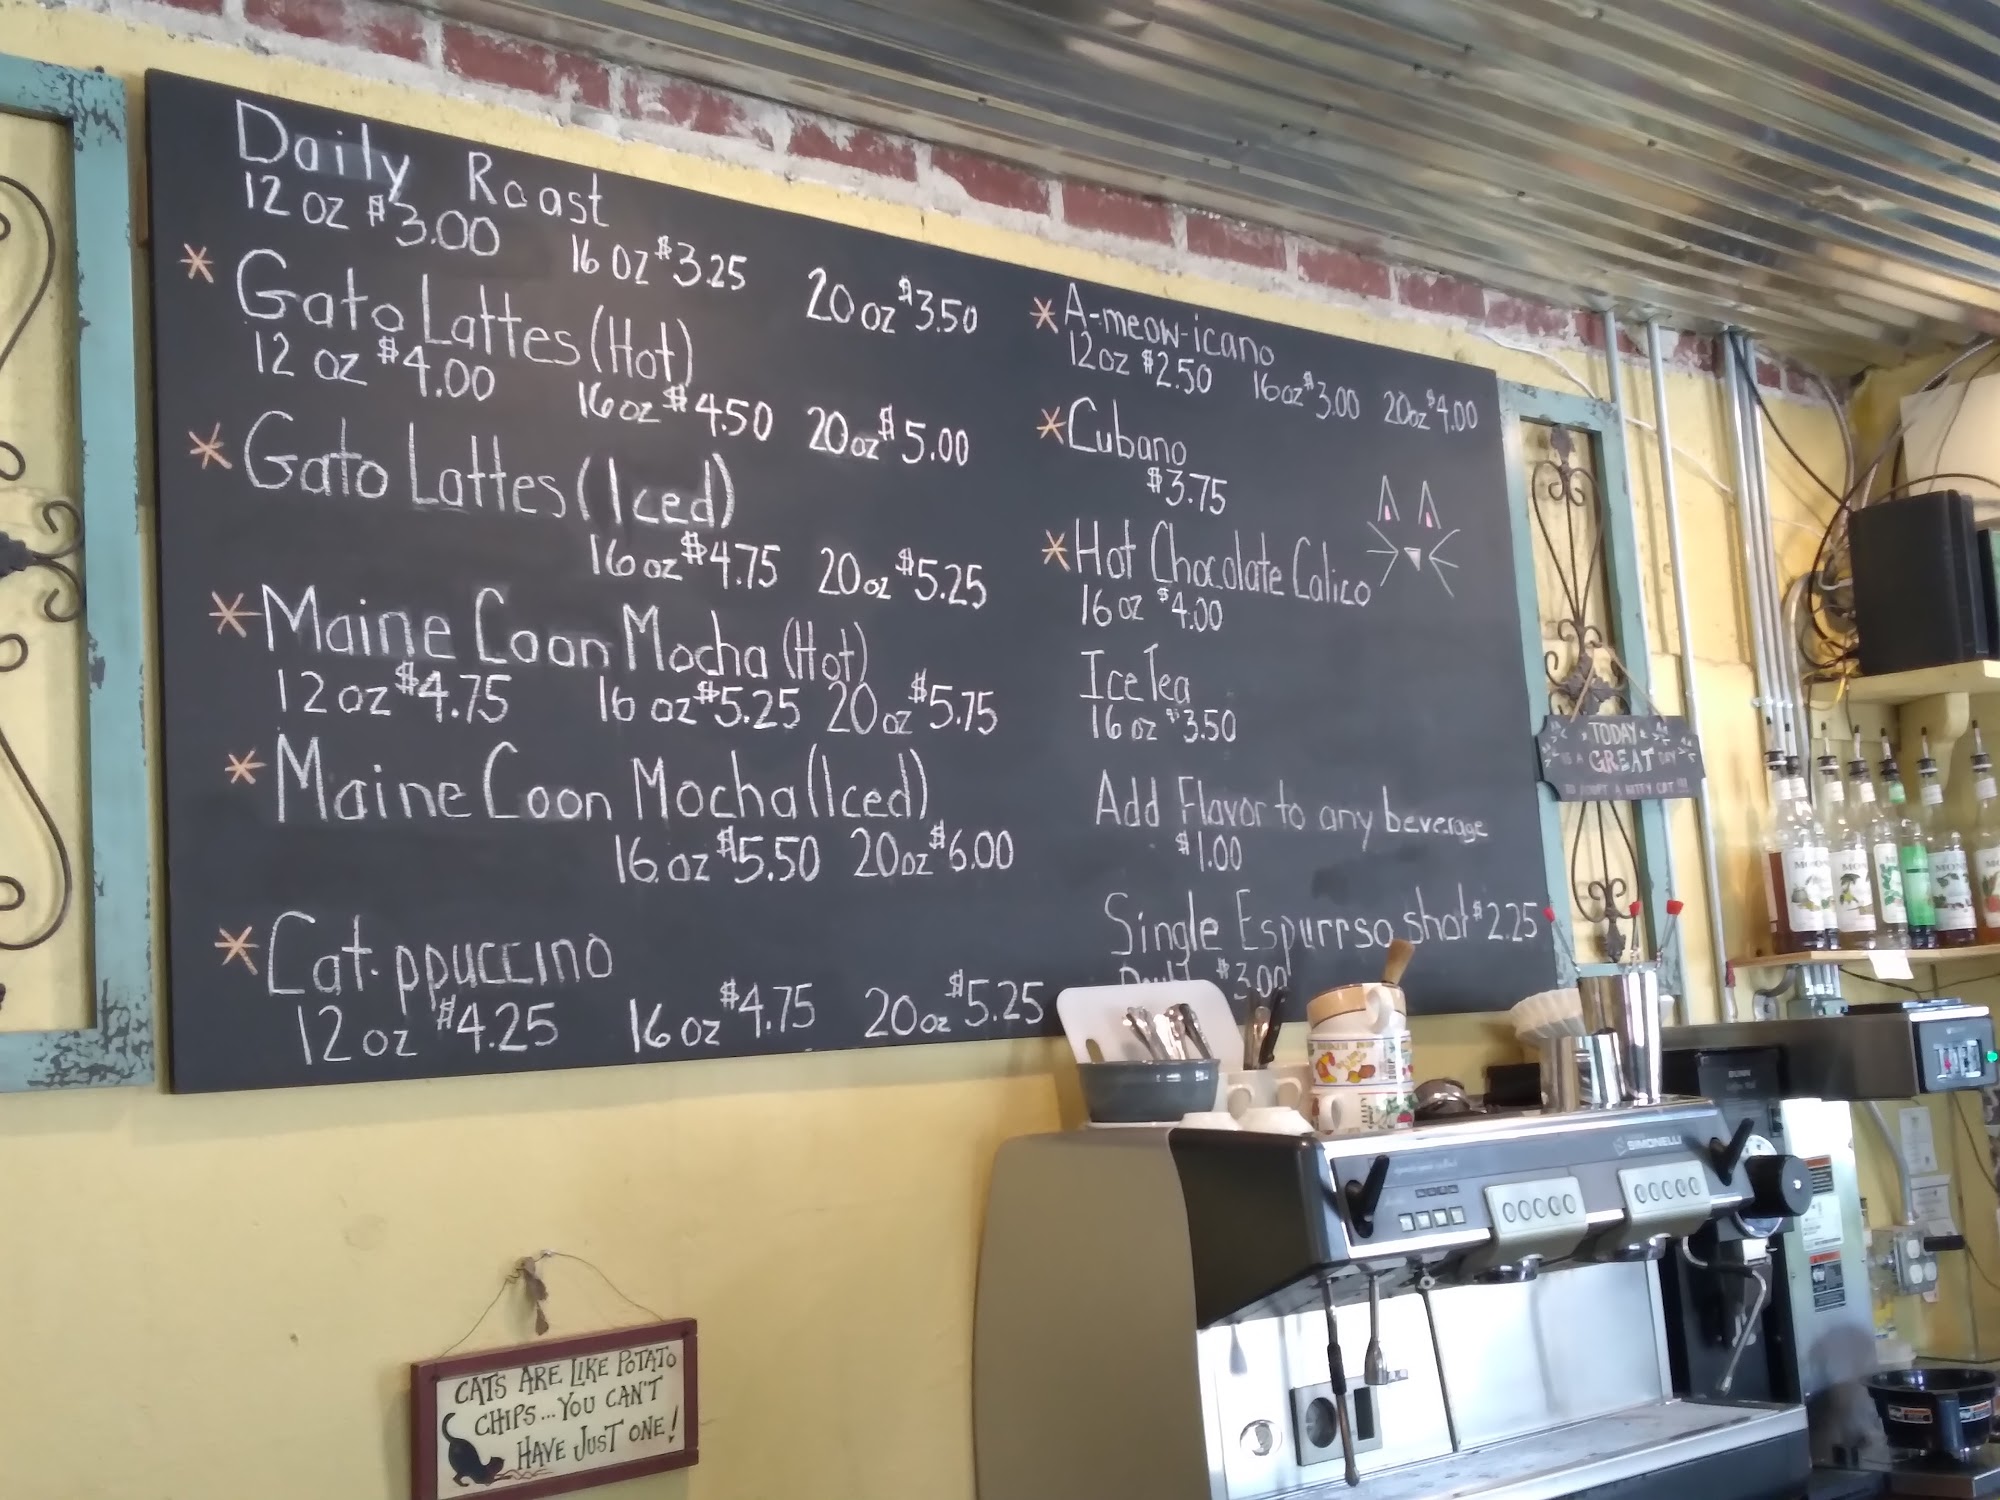 Daily Roast
12 oz $3.00 16 oz $3.25 20 oz $3.50
* Gato Lattes (Hot)
12 oz $4.00 16 oz $4.50 20 oz $5.00
* Gato Lattes (Iced)
16 oz $4.75 20 oz $5.25
* Maine Coon Mocha (Hot)
12 oz $4.75 16 oz $5.25 20 oz $5.75
* Maine Coon Mocha (Iced)
16 oz $5.50 20 oz $6.00
* Cat-ppuccino
12 oz $4.25 16 oz $4.75 20 oz $5.25
* A-meow-icano
12 oz $2.50 16 oz $3.00 20 oz $4.00
* Cubano
$3.75
* Hot Chocolate Calico
16 oz $4.00
Ice Tea
16 oz $3.50
Add Flavor to any beverage
$1.00
Single Espurrso shot $2.25
$3.00
TODAY
IS A GREAT DAY
TO ADOPT A KITTY CAT !!!
CATS ARE LIKE POTATO
CHIPS... YOU CAN'T
HAVE JUST ONE!
SIMONELLI
BUNN